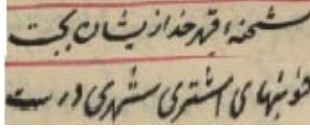 شحنهٔ قهر خدا زیشان بجست
خونبهای اشتری شهری درست